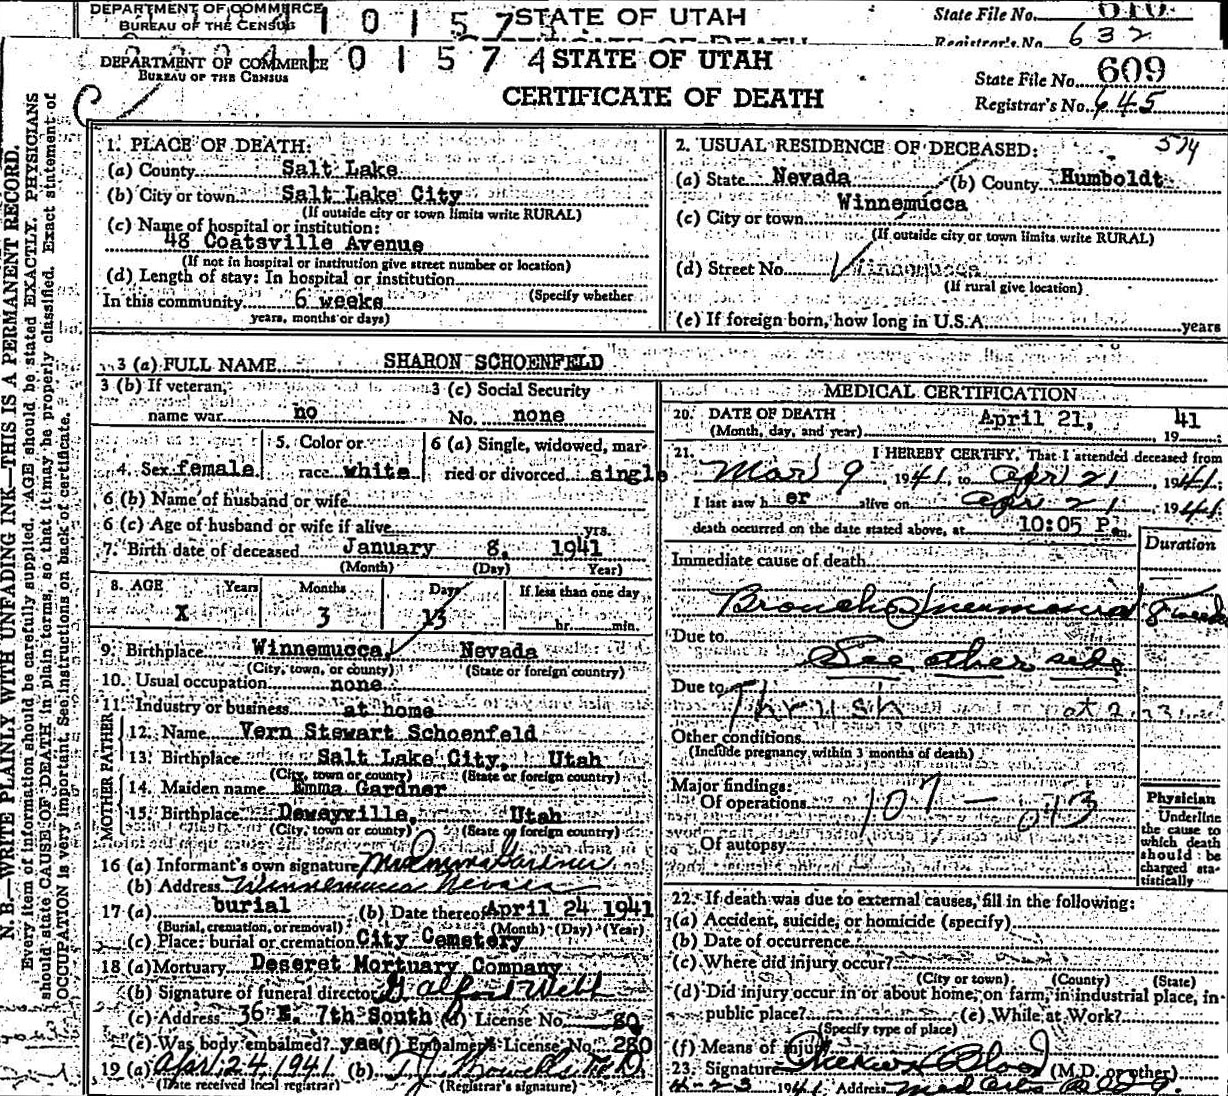 DEPARTMENT OF COMMERCE
BUREAU OF THE CENSUS
1 0 1 5 7
STATE OF UTAH
State File No. 610
Registrar's No. 632
DEPARTMENT OF COMMERCE
BUREAU OF THE CENSUS
1 0 1 5 7 4
STATE OF UTAH
CERTIFICATE OF DEATH
State File No. 609
Registrar's No. 645
N. B.—WRITE PLAINLY WITH UNFADING INK—THIS IS A PERMANENT RECORD.
Every item of information should be carefully supplied. AGE should be stated EXACTLY. PHYSICIANS
should state CAUSE OF DEATH in plain terms, so that it may be properly classified. Exact statement of
OCCUPATION is very important. See instructions on back of certificate.
1. PLACE OF DEATH:
(a) County Salt Lake
(b) City or town Salt Lake City
(If outside city or town limits write RURAL)
(c) Name of hospital or institution:
48 Coatsville Avenue
(If not in hospital or institution give street number or location)
(d) Length of stay: In hospital or institution
(Specify whether
In this community 6 weeks
years, months or days)
2. USUAL RESIDENCE OF DECEASED: 574
(a) State Nevada (b) County Humboldt
Winnemucca
(c) City or town
(If outside city or town limits write RURAL)
(d) Street No. Winnemucca
(If rural give location)
(e) If foreign born, how long in U.S.A. years
3 (a) FULL NAME SHARON SCHOENFELD
3 (b) If veteran, 3 (c) Social Security
name war no No. none
4. Sex female 5. Color or race white 6 (a) Single, widowed, married or divorced single
6 (b) Name of husband or wife
6 (c) Age of husband or wife if alive yrs.
7. Birth date of deceased January 8, 1941
(Month) (Day) Year)
8. AGE Years Months Days If less than one day
X 3 13 hr. min.
9. Birthplace Winnemucca, Nevada
(City, town, or county) (State or foreign country)
10. Usual occupation none
11. Industry or business at home
FATHER
12. Name Vern Stewart Schoenfeld
13. Birthplace Salt Lake City, Utah
(City, town or county) (State or foreign country)
MOTHER
14. Maiden name Emma Gardner
15. Birthplace Deweyville, Utah
(City, town or county) (State or foreign country)
16 (a) Informant's own signature Mrs Emma Gardner
(b) Address Winnemucca Nevada
17 (a) burial (b) Date thereof April 24 1941
(Burial, cremation, or removal) (Month) (Day) (Year)
(c) Place: burial or cremation City Cemetery
18 (a) Mortuary Deseret Mortuary Company
(b) Signature of funeral director
(c) Address 36 E. 7th South (d) License No. 80
(e) Was body embalmed? yes (f) Embalmer's License No. 280
19 (a) Apr. 24, 1941 (b)
(Date received local registrar) (Registrar's signature)
MEDICAL CERTIFICATION
20. DATE OF DEATH April 21, 19 41
(Month, day, and year)
21. I HEREBY CERTIFY, That I attended deceased from
Mar 9 1941, to Apr 21, 1941;
I last saw h er alive on Apr 21, 1941
death occurred on the date stated above, at 10:05 P. m.
Duration
Immediate cause of death
Broncho pneumonia
Due to
See other side
Due to Thrush
Other conditions
(Include pregnancy within 3 months of death)
Major findings:
Of operations 107 —
Of autopsy
Physician
Underline
the cause to
which death
should be
charged statistically
22. If death was due to external causes, fill in the following:
(a) Accident, suicide, or homicide (specify)
(b) Date of occurrence
(c) Where did injury occur?
(City or town) (County) (State)
(d) Did injury occur in or about home, on farm, in industrial place, in
public place? (e) While at Work?
(Specify type of place)
(f) Means of injury
23. Signature (M.D. or other)
4-23 1941 Address Med Arts Bldg.